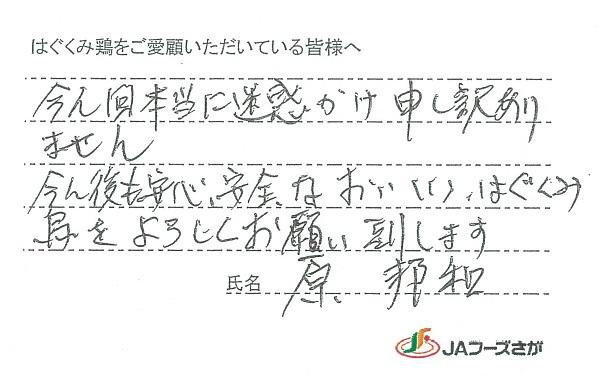 はぐくみ鶏をご愛顧いただいている皆様へ
今ん回本当に迷惑かけ申し訳あり
ません
今ん後も安心、安全なおいしい、はぐくみ
鳥をよろしくお願い致します
氏名 原 邦和
JAフーズさが